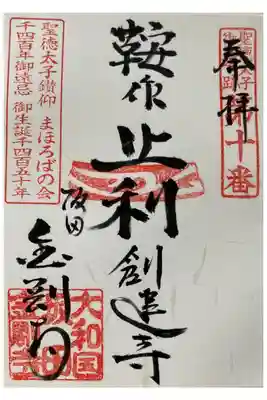 奉拝
第十番
鞍作止利創建寺
坂田
金剛寺
聖徳太子鑽仰 まほろばの会
千四百年御遠忌 御生誕千四百五十年
大和国